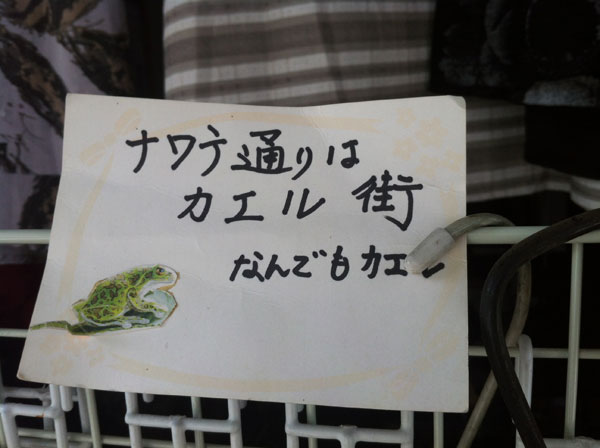 ナワテ通りは
カエル街
なんでもカエル